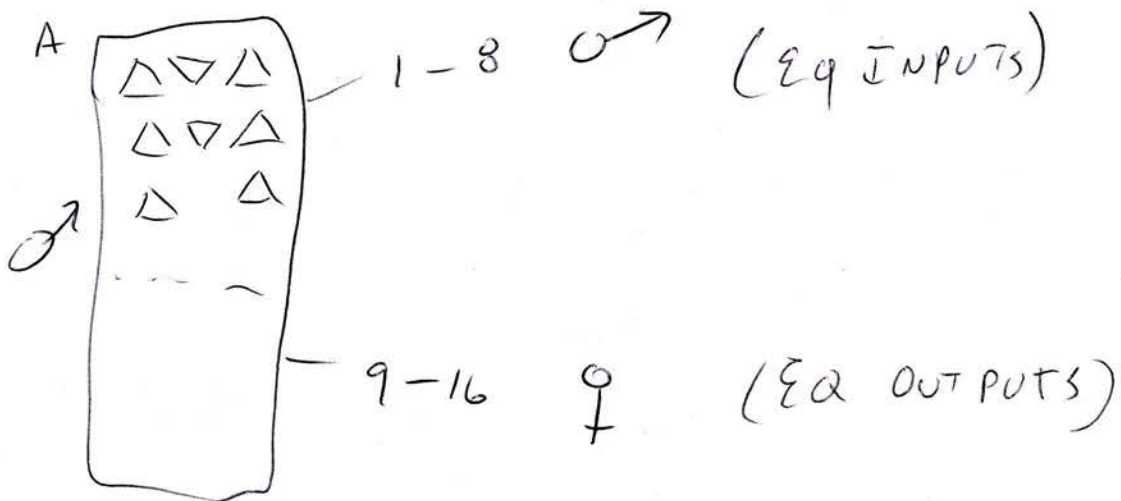 A
1 - 8 ♂ (EQ INPUTS)
♂
9 - 16 ♀ (EQ OUTPUTS)